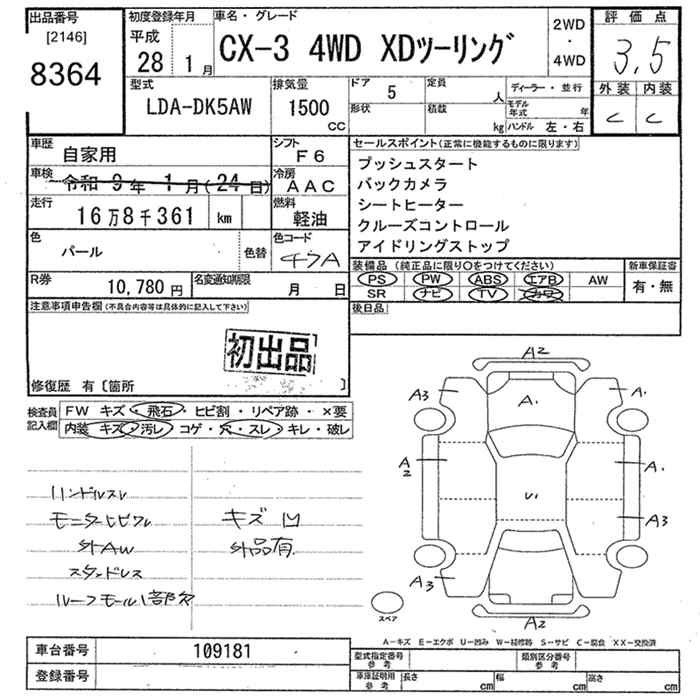 出品番号
[2146]
8364
初度登録年月
平成
28年 1月
車名・グレード
CX-3 4WD XDツーリング
2WD
・
4WD
評価点
3,5
外装 内装
C C
型式
LDA-DK5AW
排気量
1500
CC
ドア
5
定員
人
形状
積載
kg
ディーラー・並行
モデル年式 年
ハンドル 左・右
車歴
自家用
シフト
F6
車検
令和 9年 1月(24日)
冷房
AAC
走行
16万8千361 km
燃料
軽油
色
パール
色替
色コード
47A
R券
10,780円
名変通知期限
月 日
セールスポイント(正常に機能するものに限ります)
プッシュスタート
バックカメラ
シートヒーター
クルーズコントロール
アイドリングストップ
装備品 (純正品に限り○をつけてください)
PS PW ABS エアB AW
SR ナビ TV カワ
新車保証書
有・無
後日品
注意事項申告欄(不具合内容等は具体的に記入して下さい)
初出品
修復歴 有〔箇所 〕
検査員記入欄
FW キズ・飛石・ヒビ割・リペア跡・×要
内装 キズ・汚レ コゲ・穴・スレ・キレ・破レ
ハンドルスレ
モニターヒビワレ
外AW
スタッドレス
ルーフモール1部欠
キズ凹
外品有
A2
A3
A1
A1
A2
A1
U1
A3
A3
A2
スペア
A-キズ E-エクボ U-凹み W-補修跡 S-サビ C-腐食 XX-交換済
車台番号
109181
登録番号
型式指定番号
参考
類別区分番号
参考
車庫証明用
参考
長さ cm
幅 cm
高さ cm